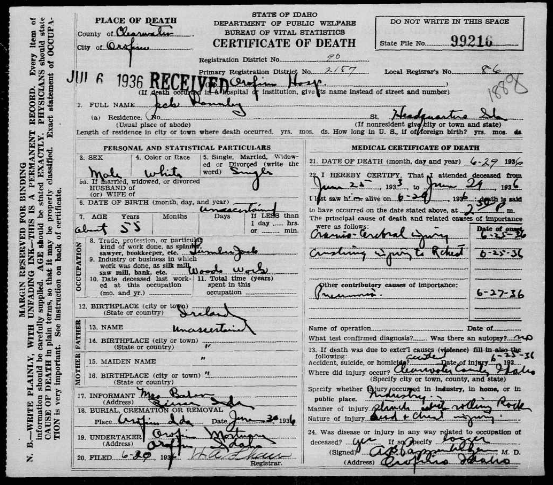 STATE OF IDAHO
DEPARTMENT OF PUBLIC WELFARE
BUREAU OF VITAL STATISTICS
CERTIFICATE OF DEATH
DO NOT WRITE IN THIS SPACE
State File No. 99216
PLACE OF DEATH
County of Clearwater
City of Orofino
Registration District No. 80
Primary Registration District No. 2157 Local Registrar's No. 86
JUL 6 1936 RECEIVED
Orofino Hosp.
(If death occurred in a hospital or institution, give its name instead of street and number)
2. FULL NAME Jack
(a) Residence. No. St. Headquarters Ida
(Usual place of abode) (If nonresident give city or town and state)
Length of residence in city or town where death occurred. yrs. mos. ds. How long in U. S., if of foreign birth? yrs. mos. ds.
PERSONAL AND STATISTICAL PARTICULARS
3. SEX 4. Color or Race 5. Single, Married, Widowed or Divorced (write the word)
Male White Single
5a. If married, widowed, or divorced
HUSBAND of
(or) WIFE of
6. DATE OF BIRTH (month, day, and year)
unascertained
7. AGE Years Months Days If LESS than 1 day, hrs. or min.
about 55
OCCUPATION
8. Trade, profession, or particular kind of work done, as spinner, sawyer, bookkeeper, etc. Lumber Jack
9. Industry or business in which work was done, as silk mill, saw mill, bank, etc. Woods work
10. Date deceased last worked at this occupation (mo. and yr.) 11. Total time (years) spent in this occupation
12. BIRTHPLACE (city or town) Ireland
(State or country)
13. NAME unascertained
14. BIRTHPLACE (city or town) "
(State or country)
15. MAIDEN NAME "
16. BIRTHPLACE (city or town) "
(State or country)
MOTHER FATHER
17. INFORMANT Mrs
(Address) Ida
18. BURIAL, CREMATION OR REMOVAL
Place Orofino Ida Date June 30 1936
19. UNDERTAKER Orofino
(Address) Idaho
20. FILED 6-30 1936
Registrar.
MEDICAL CERTIFICATE OF DEATH
21. DATE OF DEATH (month, day and year) 6-29 1936
22. I HEREBY CERTIFY, That I attended deceased from
June 25 1936 to June 29 1936
I last saw him alive on 6-29 1936
to have occurred on the date stated above, at
The principal cause of death and related causes of importance were as follows:
Cranio Cerebral Injury 6-25-36
Crushing Injury to Chest 6-25-36
Other contributory causes of importance:
Pneumonia 6-27-36
Name of operation
What test confirmed diagnosis? Was there an autopsy? no
23. If death was due to external causes (violence) fill in also the following:
accident, suicide, or homicide? Date of injury 6-25-36
Where did injury occur? Clearwater County Idaho
(Specify city or town, county, and state)
Specify whether injury occurred in industry, in home, or in public place. Industry
Manner of injury struck rolling Rock
Nature of injury
24. Was disease or injury in any way related to occupation of deceased? yes If so specify logger
(Signed) M. D.
(Address) Orofino Idaho
MARGIN RESERVED FOR BINDING
N. B.—WRITE PLAINLY, WITH UNFADING INK—THIS IS A PERMANENT RECORD. Every item of
information should be carefully supplied. AGE should be stated EXACTLY. PHYSICIANS should state
CAUSE OF DEATH in plain terms, so that it may be properly classified. Exact statement of OCCUPATION is very important. See instruction on back of certificate.